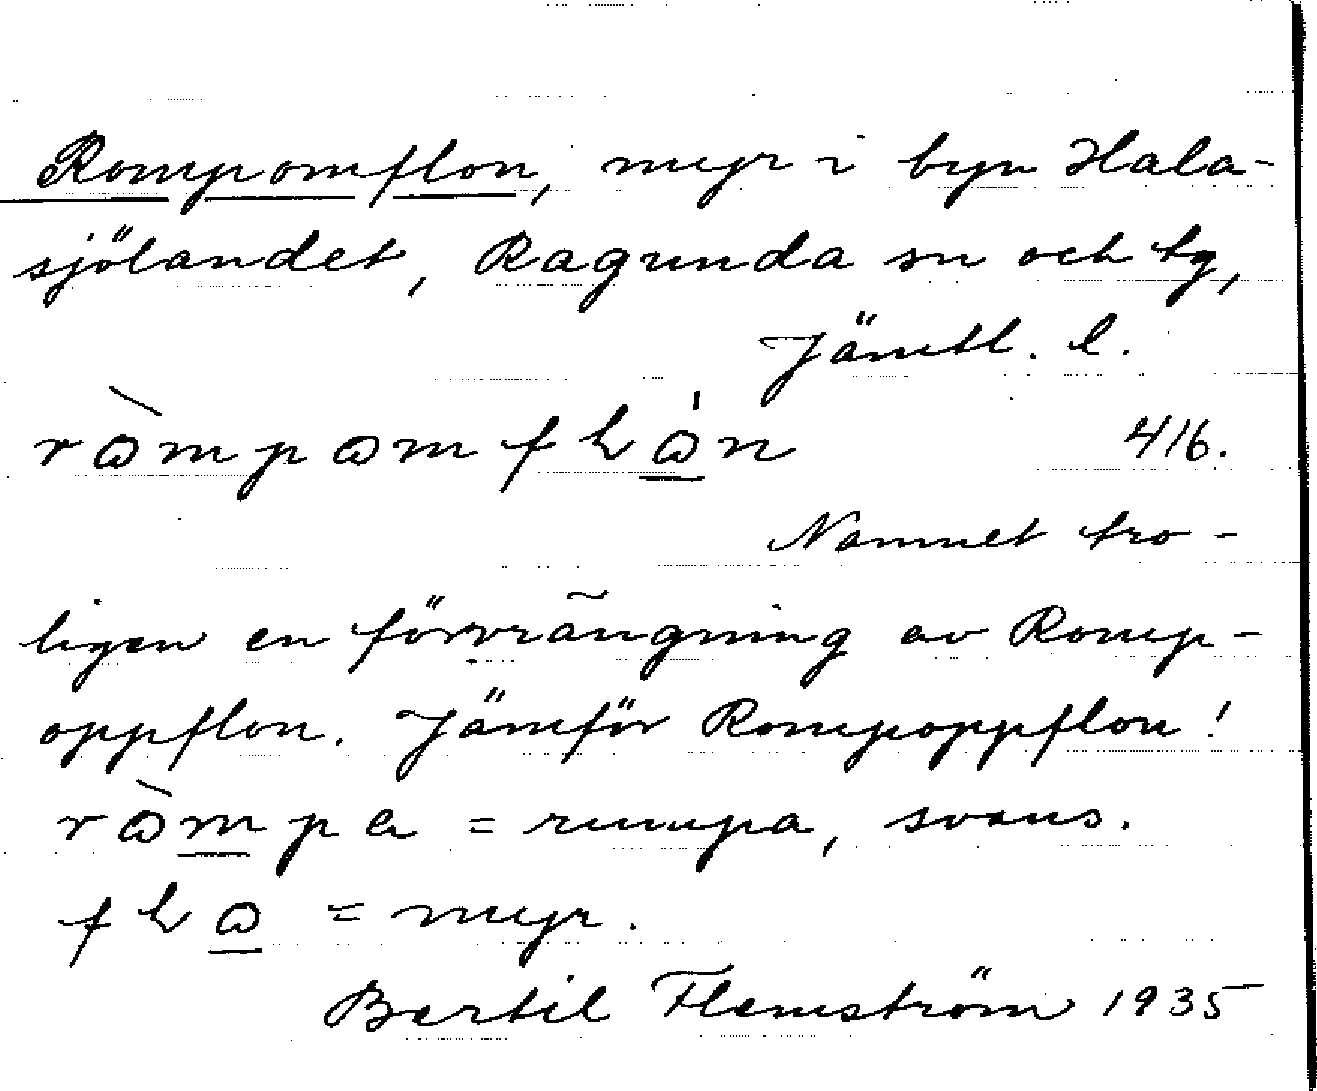 Rompomflon, myr i byn Hala-
sjölandet, Ragunda sn och tg,
Jämtl. l.
ròmpomflón 416.
Namnet tro-
ligen en förvrängning av Romp-
oppflon. Jämför Rompoppflon!
ròmpa = rumpa, svans.
flo = myr.
Bertil Flemström 1935